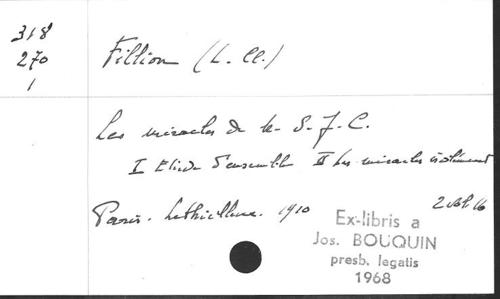 318
270
1
Fillion (L. Cl.)
Les miracles de N. S. J. C.
I Etude d'ensemble II Les miracles isolément
Paris. Lethielleux. 1910 2 vol. 16
Ex-libris a
Jos. BOUQUIN
presb. legatis
1968